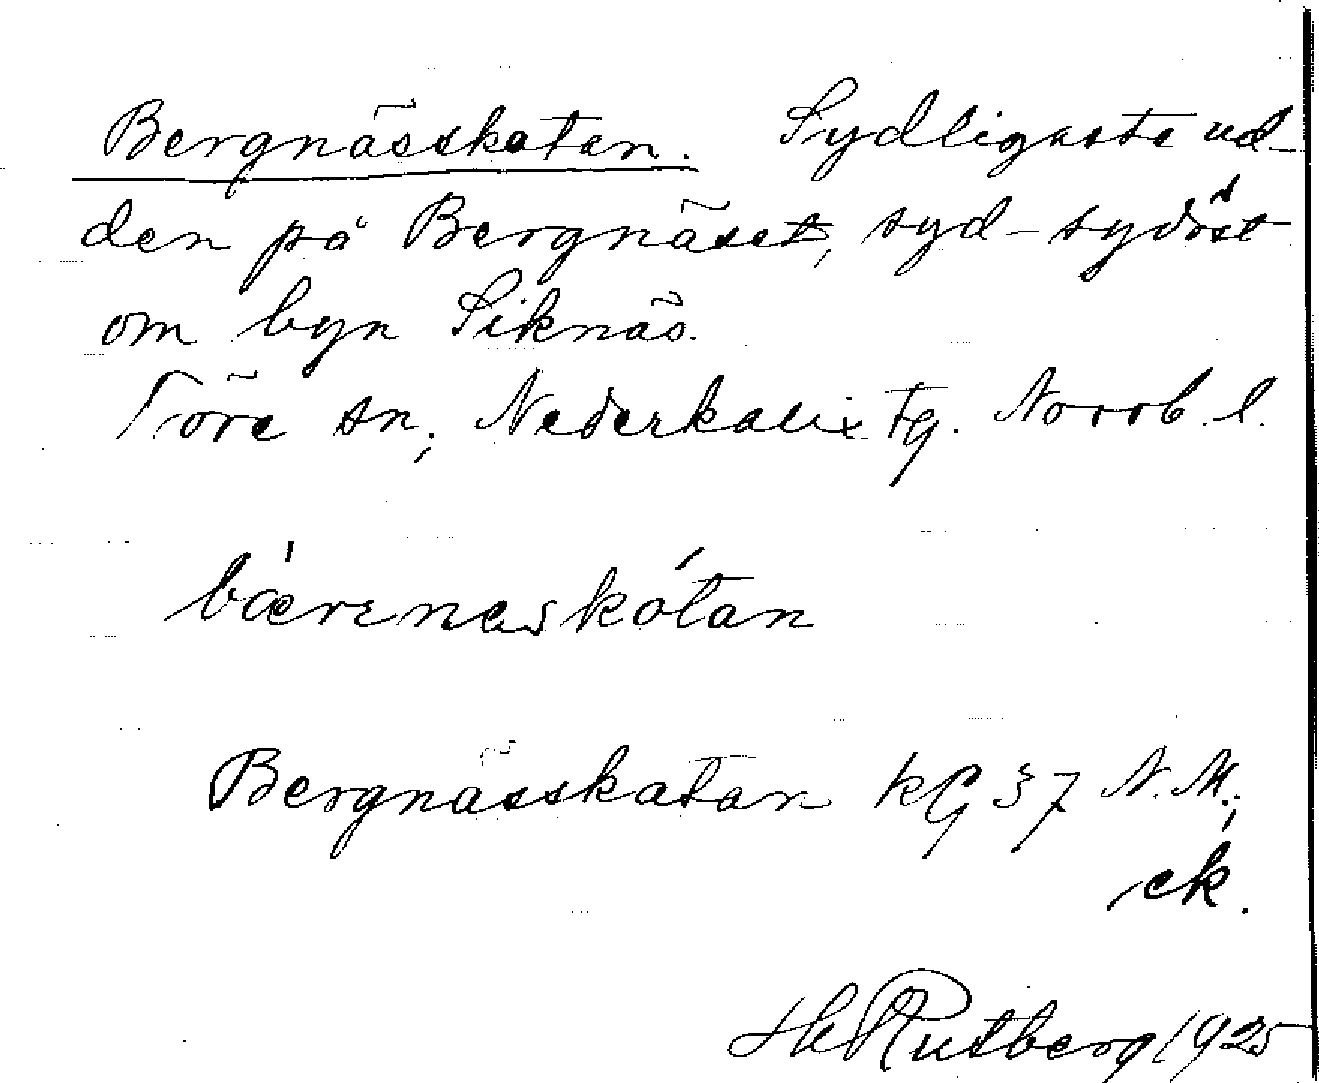 Bergnässkatan. Sydligaste ud-
den på Bergnäset, syd-sydöst
om byn Siknäs.
Töre sn, Nederkalix tg. Norrb. l.
Bergnässkatan kG 37 N.M.;
ek.
Rutberg 1925